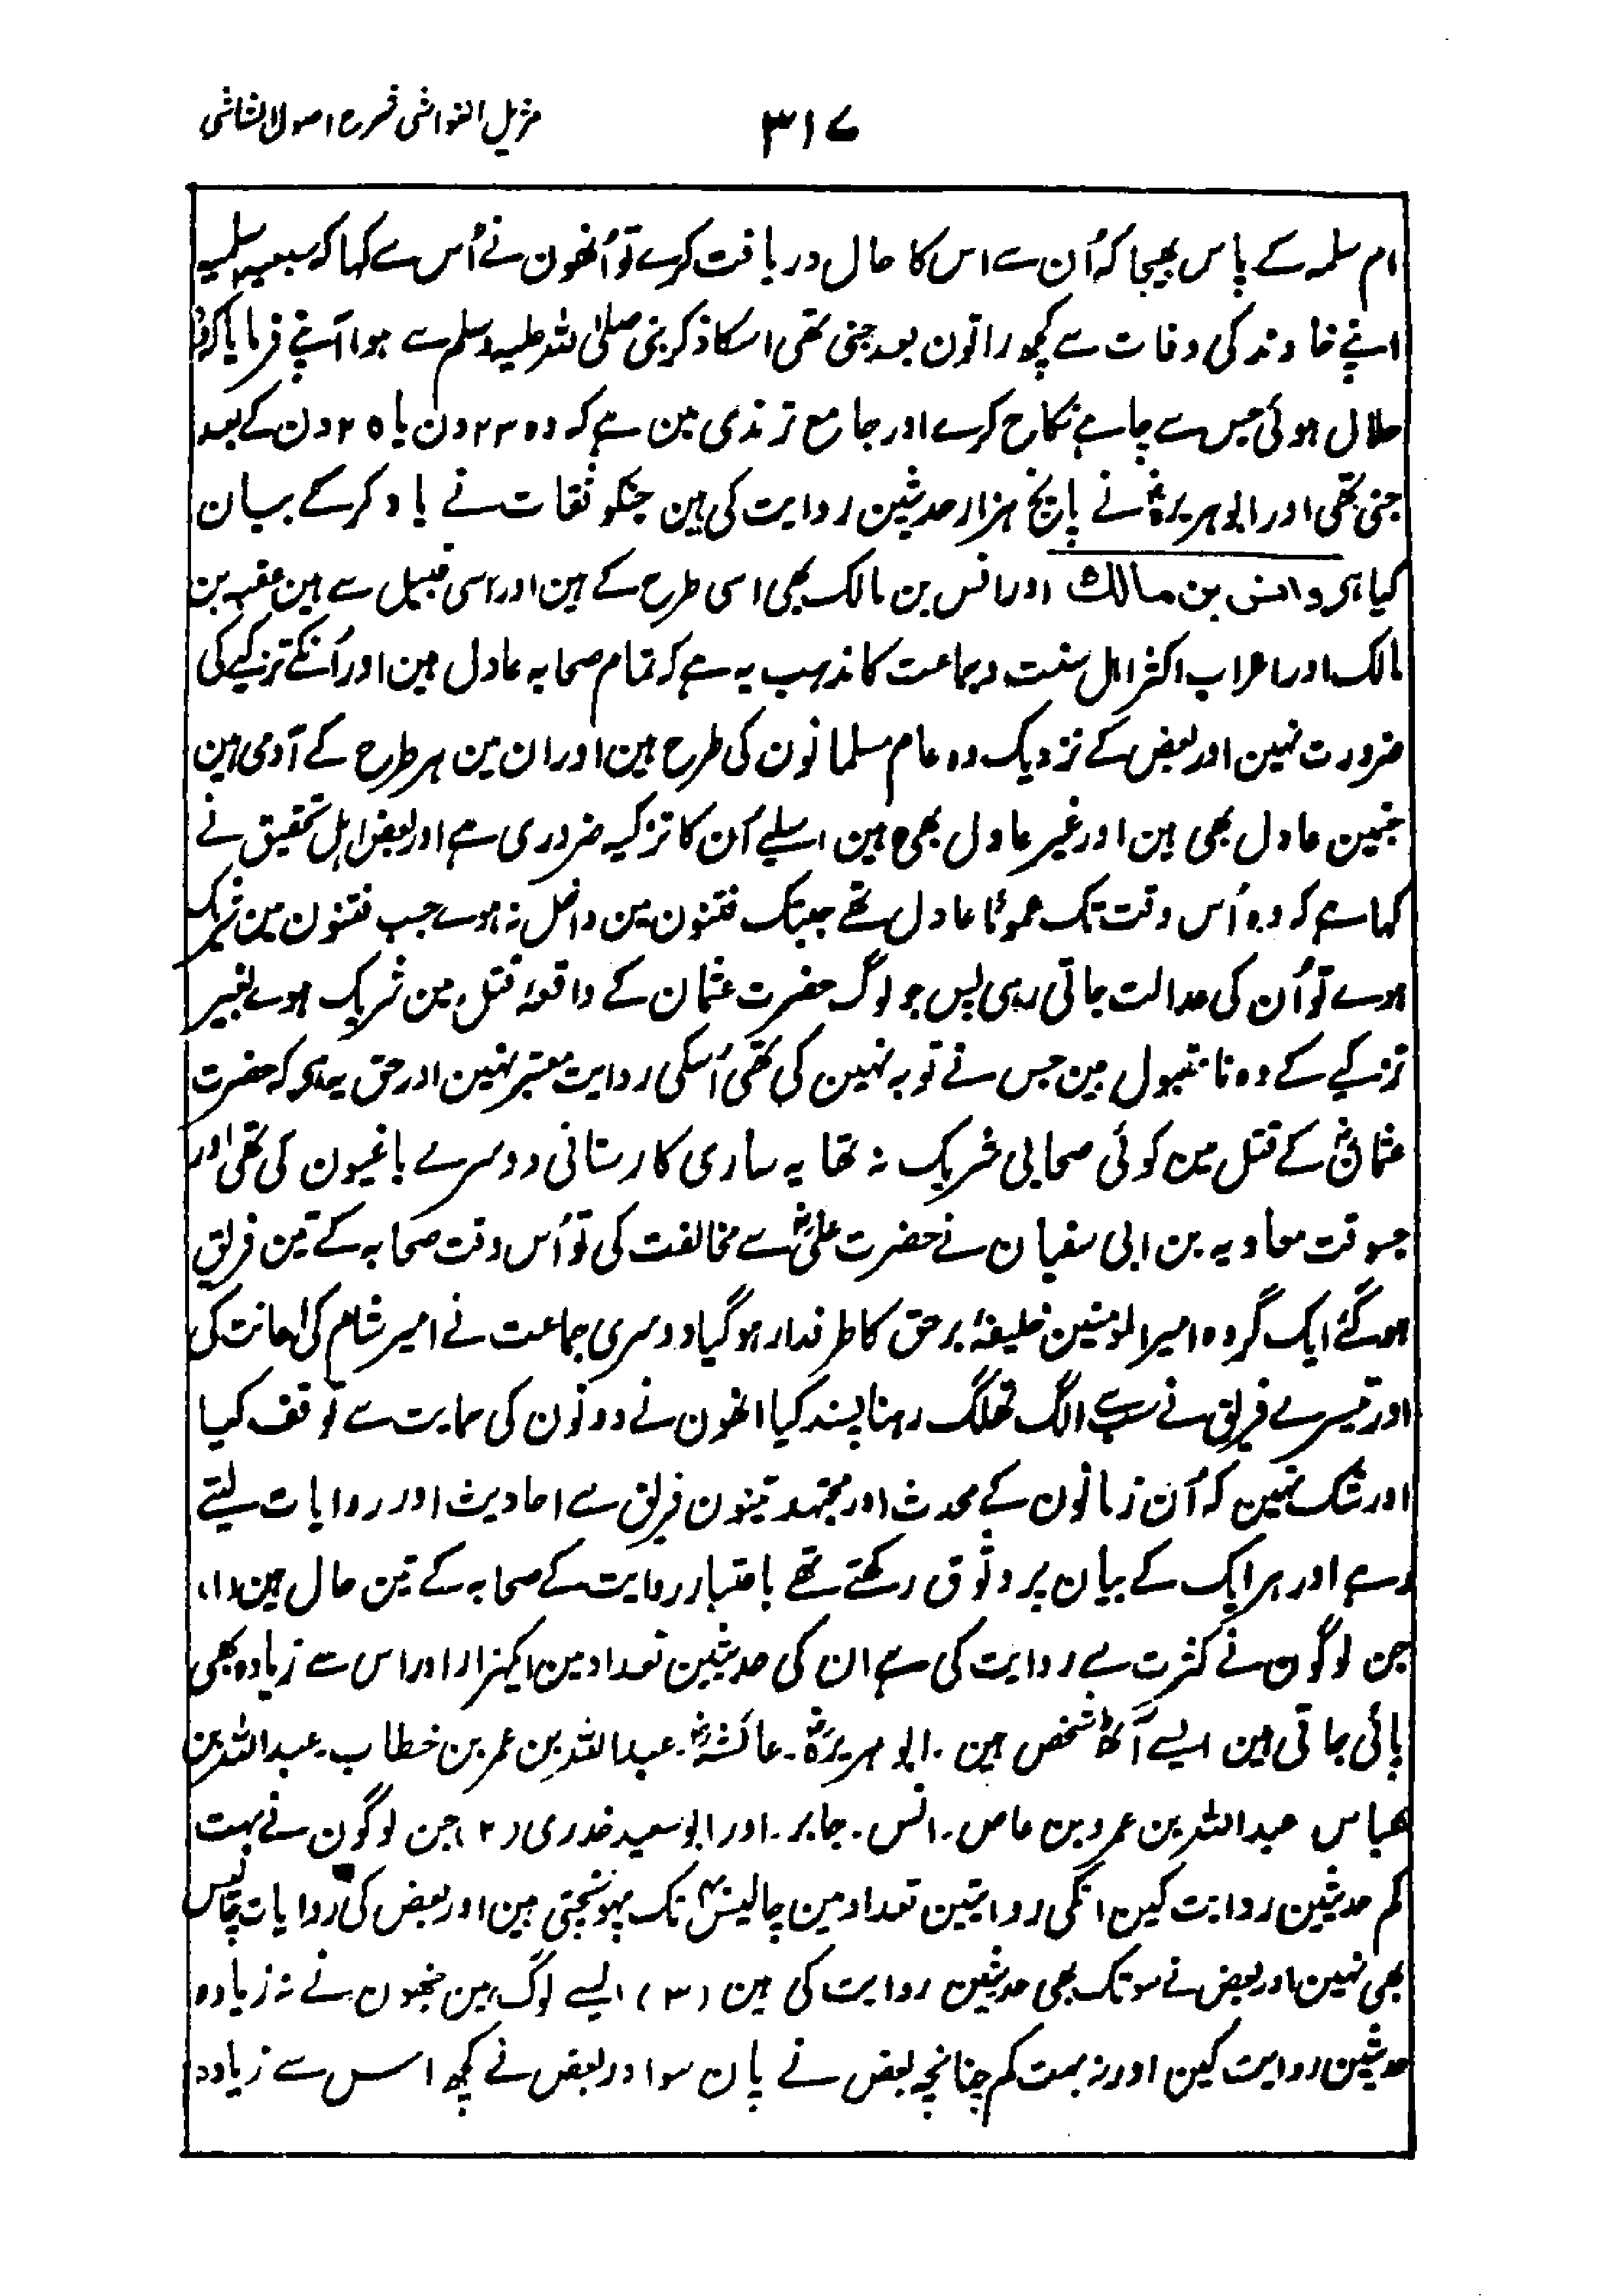 مزیل الغواشی شرح اصول الشاشی
۳۱۷
ام سلمہ کے پاس بھیجا کہ اُن سے اس کا حال دریافت کرے تو اُنھون نے اُس سے کہا کہ سبیعہ سلمیہ
اپنے خاوند کی وفات سے کچھ راتون بعد جنی تھی اسکا ذکر نبی صلی اللہ علیہ وسلم سے ہوا آپنے فرمایا کہ
حلال ہوئی جس سے چاہے نکاح کرے اور جامع ترمذی مین ہے کہ وہ ۲۳ دن یا ۲۵ دن کے بعد
جنی تھی اور ابو ہریرہؓ نے پانچ ہزار حدیثین روایت کی ہین جنکو ثقات نے یاد کر کے بیان
کیا ہی و انس بن مالک ش اور انس بن مالک بھی اسی طرح کے ہین اور اسی قبیل سے ہین عقبہ بن
مالک اور اعراب اکثر اہل سنت و جماعت کا مذہب یہ ہے کہ تمام صحابہ عادل ہین اور اُنکے تزکیے کی
ضرورت نہین اور بعض کے نزدیک وہ عام مسلمانون کی طرح ہین اور ان مین ہر طرح کے آدمی ہین
جنمین عادل بھی ہین اور غیر عادل بھی ہین اسلیے اُن کا تزکیہ ضروری ہے اور بعض اہل تحقیق نے
کہا ہے کہ وہ اُس وقت تک عمومًا عادل تھے جبتک فتنون مین داخل نہ ہوے جب فتنون مین شریک
ہوے تو اُن کی عدالت جاتی رہی پس جو لوگ حضرت عثمان کے واقعۂ قتل مین شریک ہوے بغیر
تزکیے کے وہ نا مقبول ہین جس نے توبہ نہین کی تھی اُسکی روایت معتبر نہین اور حق یہ ہی کہ حضرت
عثمانؓ کے قتل مین کوئی صحابی شریک نہ تھا یہ ساری کارستانی دوسرے باغیون کی تھی اور
جسوقت معاویہ بن ابی سفیان نے حضرت علیؓ سے مخالفت کی تو اُس وقت صحابہ کے تین فریق
ہو گئے ایک گروہ امیرالمومنین خلیفۂ برحق کا طرفدار ہو گیا دوسری جماعت نے امیر شام کی اعانت کی
اور تیسرے فریق نے سب سے الگ تھلگ رہنا پسند کیا انھون نے دونون کی حمایت سے توقف کیا
اور شک نہین کہ اُن زمانون کے محدث اور مجتہد تینون فریق سے احادیث اور روایات لیتے
رہے اور ہر ایک کے بیان پر وثوق رکھتے تھے باعتبار روایت کے صحابہ کے تین حال ہین (۱)
جن لوگون نے کثرت سے روایت کی ہے ان کی حدیثین تعداد مین ایکہزار اور اس سے زیادہ بھی
پائی جاتی ہین ایسے آٹھ شخص ہین ۔ ابو ہریرہؓ ۔ عائشہؓ ۔ عبداللہ بن عمر بن خطاب ۔ عبداللہ بن
عباس عبداللہ بن عمرو بن عاص ۔ انس ۔ جابر ۔ اور ابو سعید خدری (۲) جن لوگون نے بہت
کم حدیثین روایت کین انکی روایتین تعداد مین چالیس۴۰ تک پہونچتی ہین اور بعض کی روایات چالیس
بھی نہین اور بعض نے سو تک بھی حدیثین روایت کی ہین (۳) ایسے لوگ ہین جنھون نے نہ زیادہ
حدیثین روایت کین اور نہ بہت کم چنانچہ بعض نے پان سو اور بعض نے کچھ اس سے زیادہ